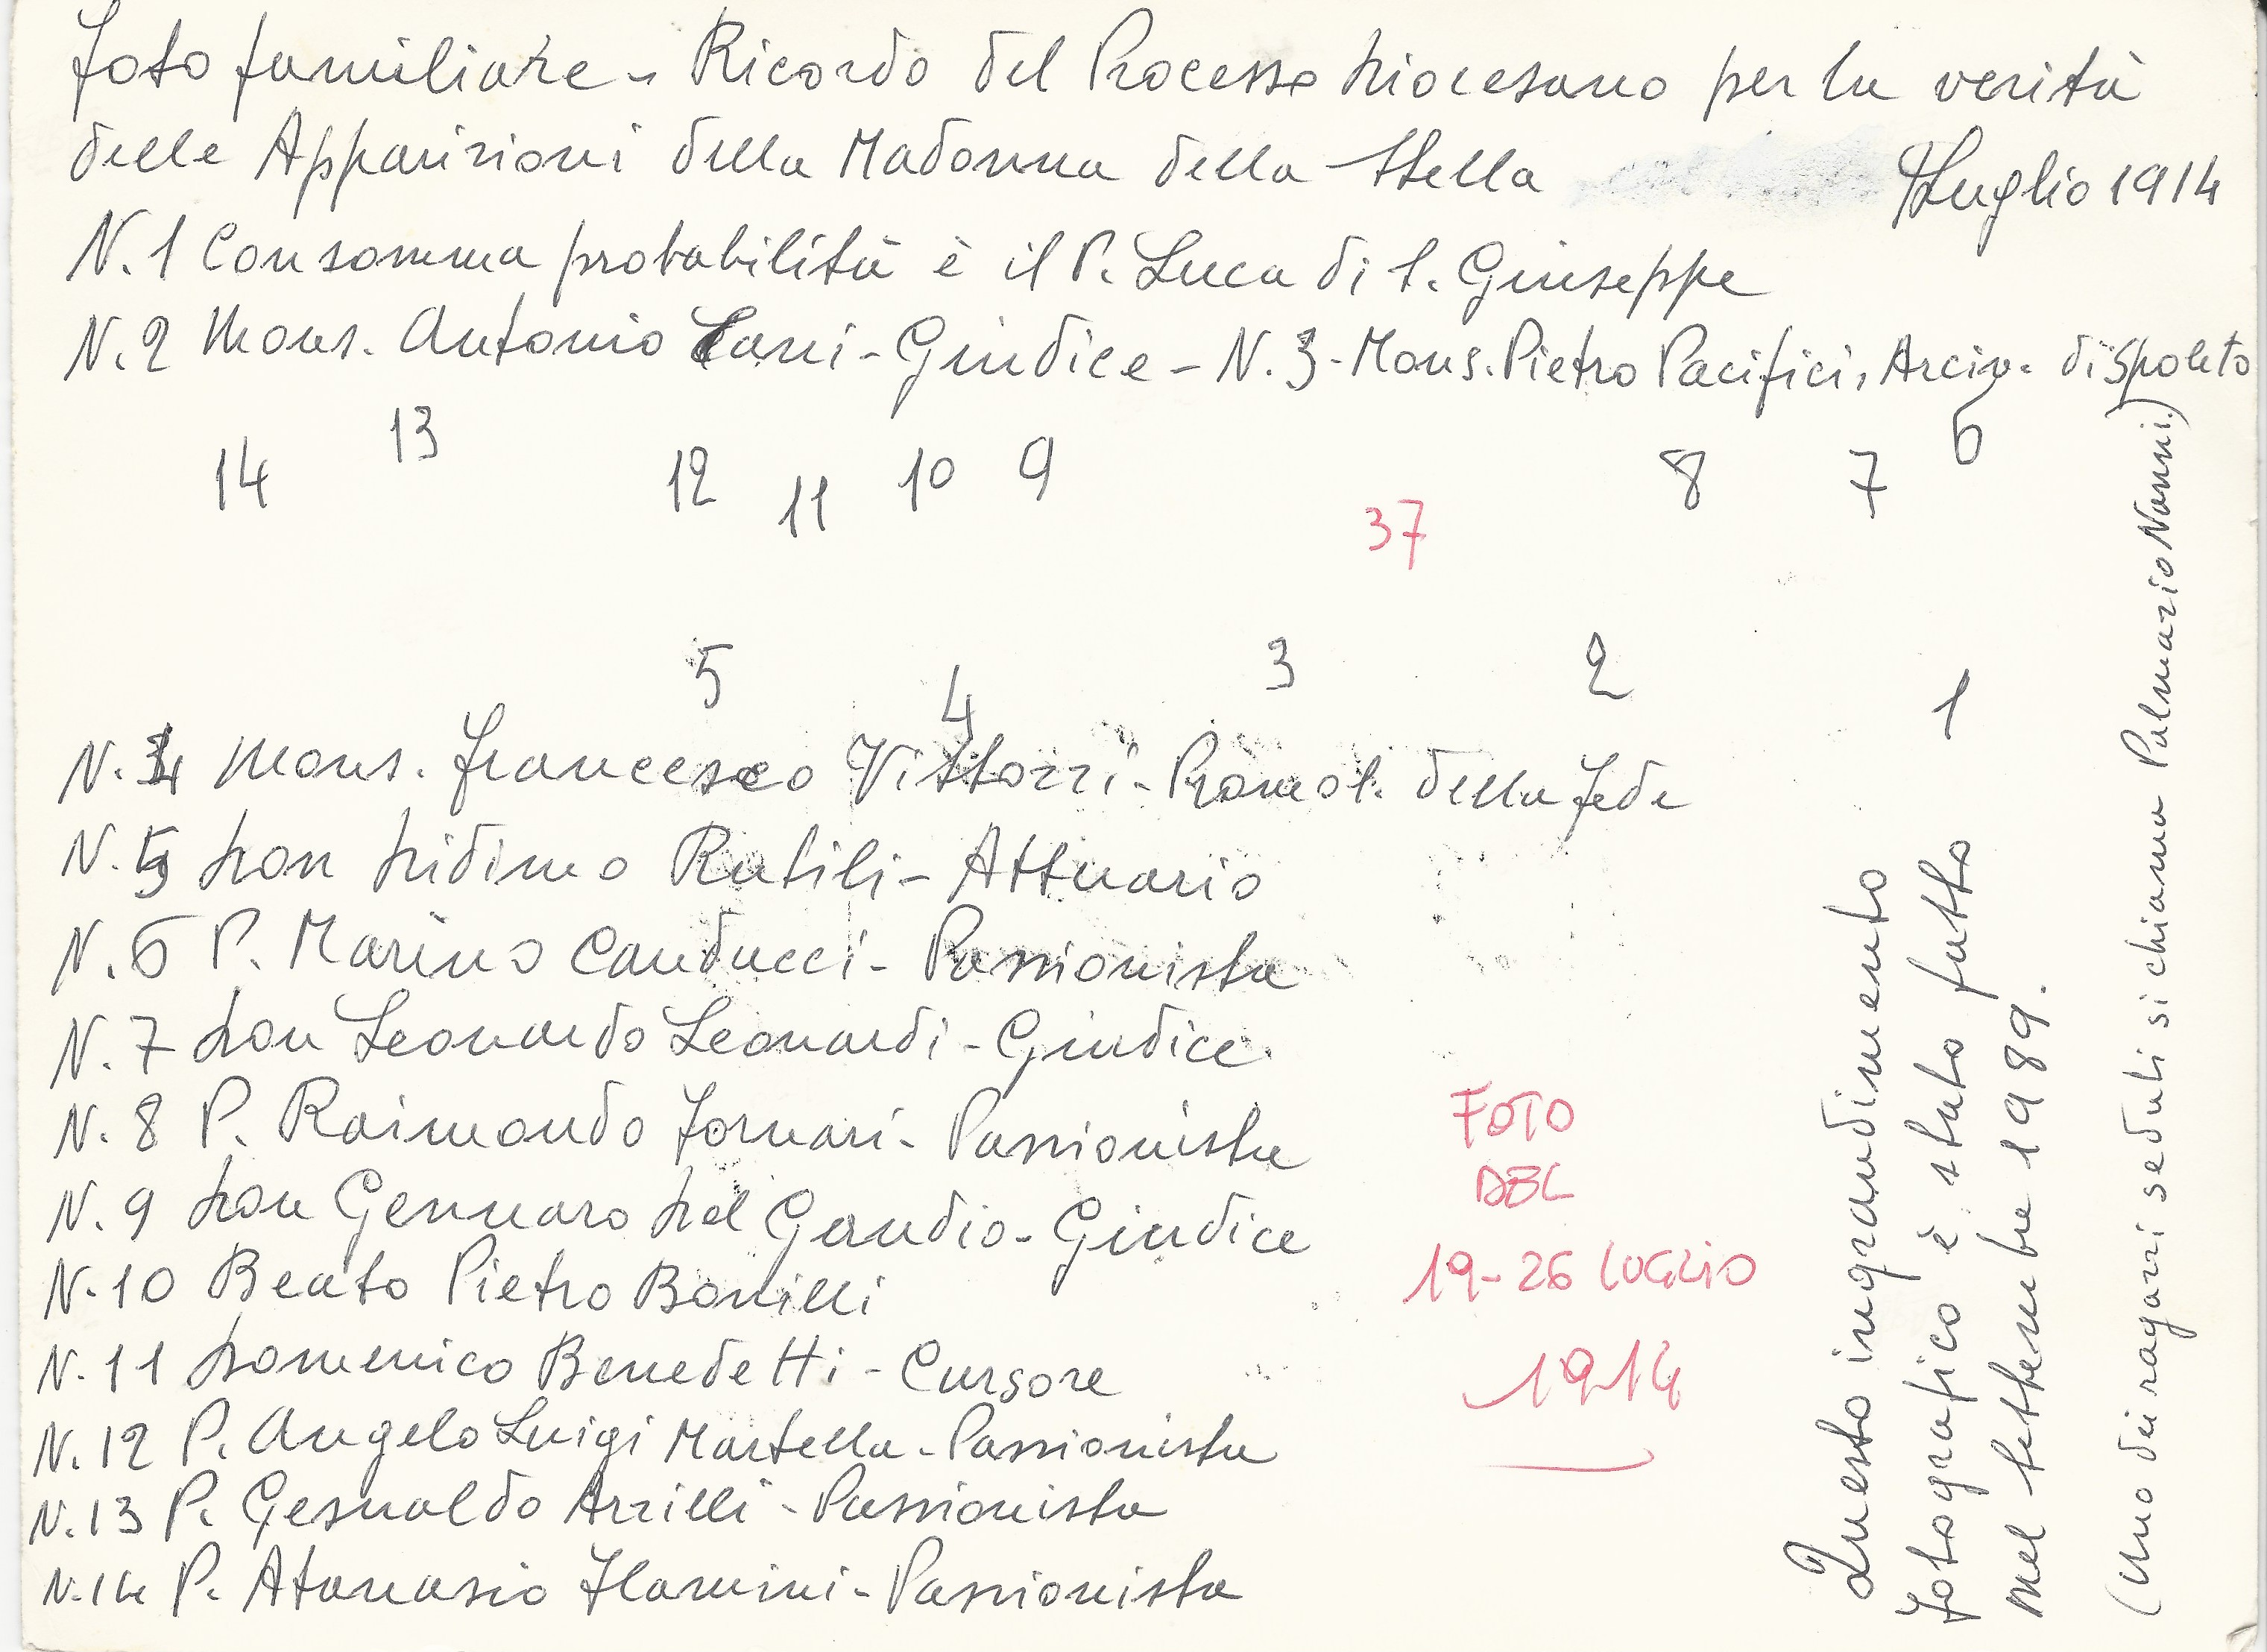 Foto familiare - Ricordo del Processo Diocesano per la verità
delle Apparizioni della Madonna della Stella Luglio 1914
N.1 Con somma probabilità è il P. Luca di S. Giuseppe
N.2 Mons. Antonio - Giudice - N.3 - Mons. Pietro Pacifici, Arciv. di Spoleto
14 13 12 11 10 9 8 7 6
37
5 4 3 2 1
N.4 Mons. Francesco Vittozzi - Promot. della Fede
N.5 Don Didimo Rutili - Attuario
N.6 P. Marino Canducci - Passionista
N.7 Don Leonardo Leonardi - Giudice
N.8 P. Raimondo Fornari - Passionista
N.9 Don Gennaro Del Gaudio - Giudice
N.10 Beato Pietro Bonilli
N.11 Domenico Benedetti - Cursore
N.12 P. Angelo Luigi Martella - Passionista
N.13 P. Gesualdo Arzilli - Passionista
N.14 P. Atanasio Flamini - Passionista
FOTO
DEL
19-26 LUGLIO
1914
Questo ingrandimento
fotografico è stato fatto
nel settembre 1989.
(Uno dei ragazzi seduti si chiama Palmazio Nanni.)